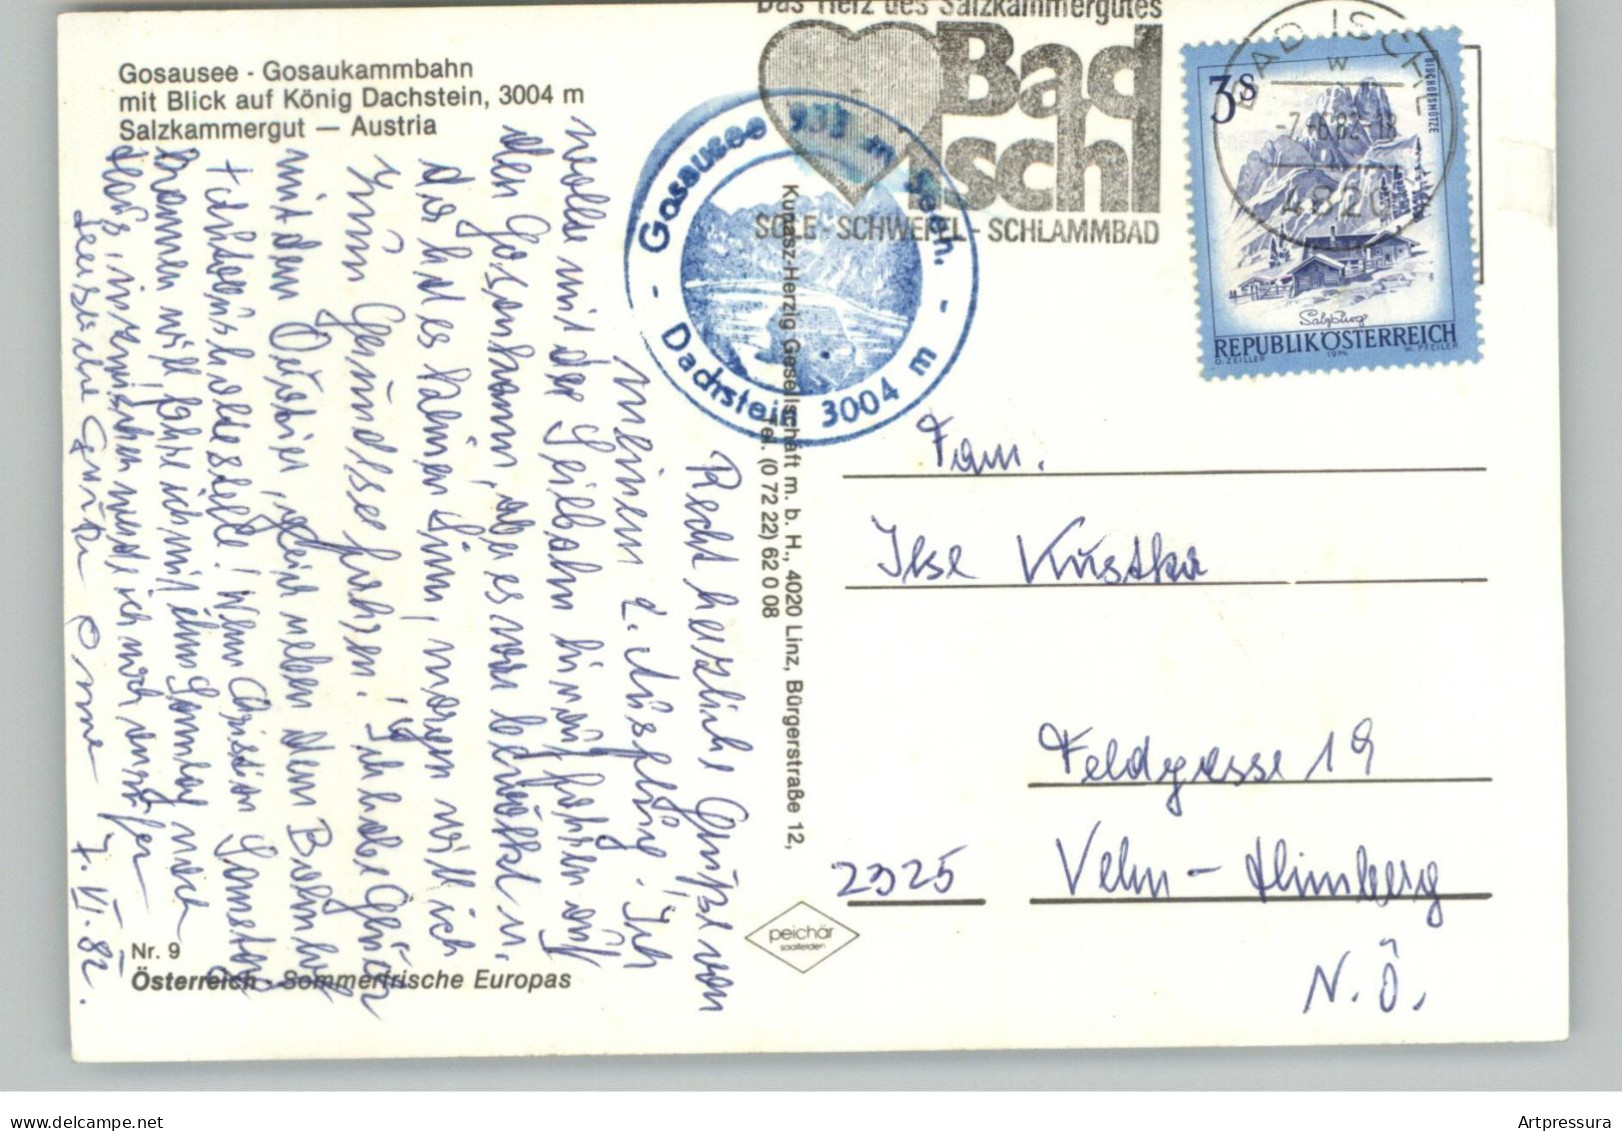 Gosausee - Gosaukammbahn
mit Blick auf König Dachstein, 3004 m
Salzkammergut — Austria
Das Herz des Salzkammergutes
Bad
Ischl
SOLE - SCHWEFEL - SCHLAMMBAD
BAD ISCHL
w
-7.-6.82-18
4820
3 S
BISCHOFSMÜTZE
Salzburg
REPUBLIK ÖSTERREICH
O. ZEILLER 1974 W. PFEILER
Gosausee 933 m Seeh.
- Dachstein 3004 m -
Kunasz-Herzig Gesellschaft m. b. H., 4020 Linz, Bürgerstraße 12,
Tel. (0 72 22) 62 0 08
Recht herzliche Grüße von
meinem 2. Ausflug. Ich
wollte mit der Seilbahn hinauffahren auf
den Gosaukamm, aber es war bewölkt u.
da hat es keinen Sinn, morgen will ich
zum Gmundsee fahren. Ich habe Glück
mit dem Quartier, gleich neben dem Bahnhof
+ Autobushaltestelle! Wenn Christian Samstag
kommen will fahre ich mit ihm Sonntag nach
Haus, inzwischen werde ich noch anrufen
Omme
7. VI. 82.
Fam.
Ilse Kustka
Feldgasse 19
2325 Velm - Himberg
N.Ö.
peichär
saalfelden
Nr. 9
Österreich - Sommerfrische Europas
www.delcampe.net
Artpressura